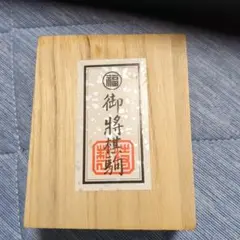 福
御将棋駒